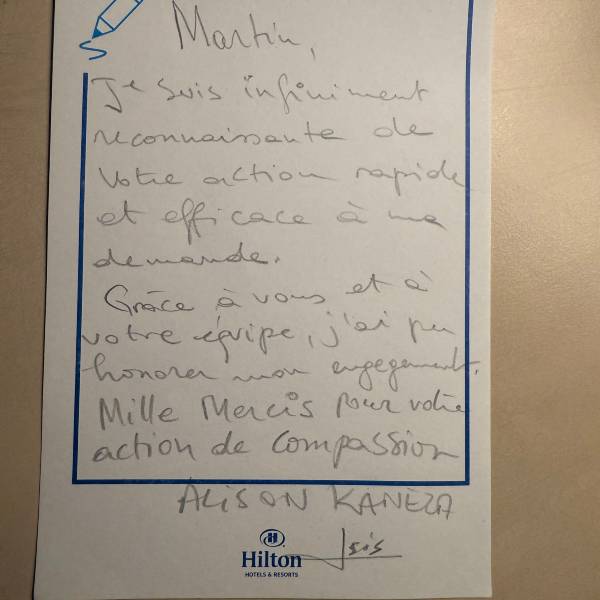 Martin,
Je suis infiniment
reconnaissante de
votre action rapide
et efficace à ma
demande.
Grâce à vous et à
votre équipe, j'ai pu
honorer mon engagement.
Mille Mercis pour votre
action de compassion
ALISON KANEZA
Isis
Hilton
HOTELS & RESORTS